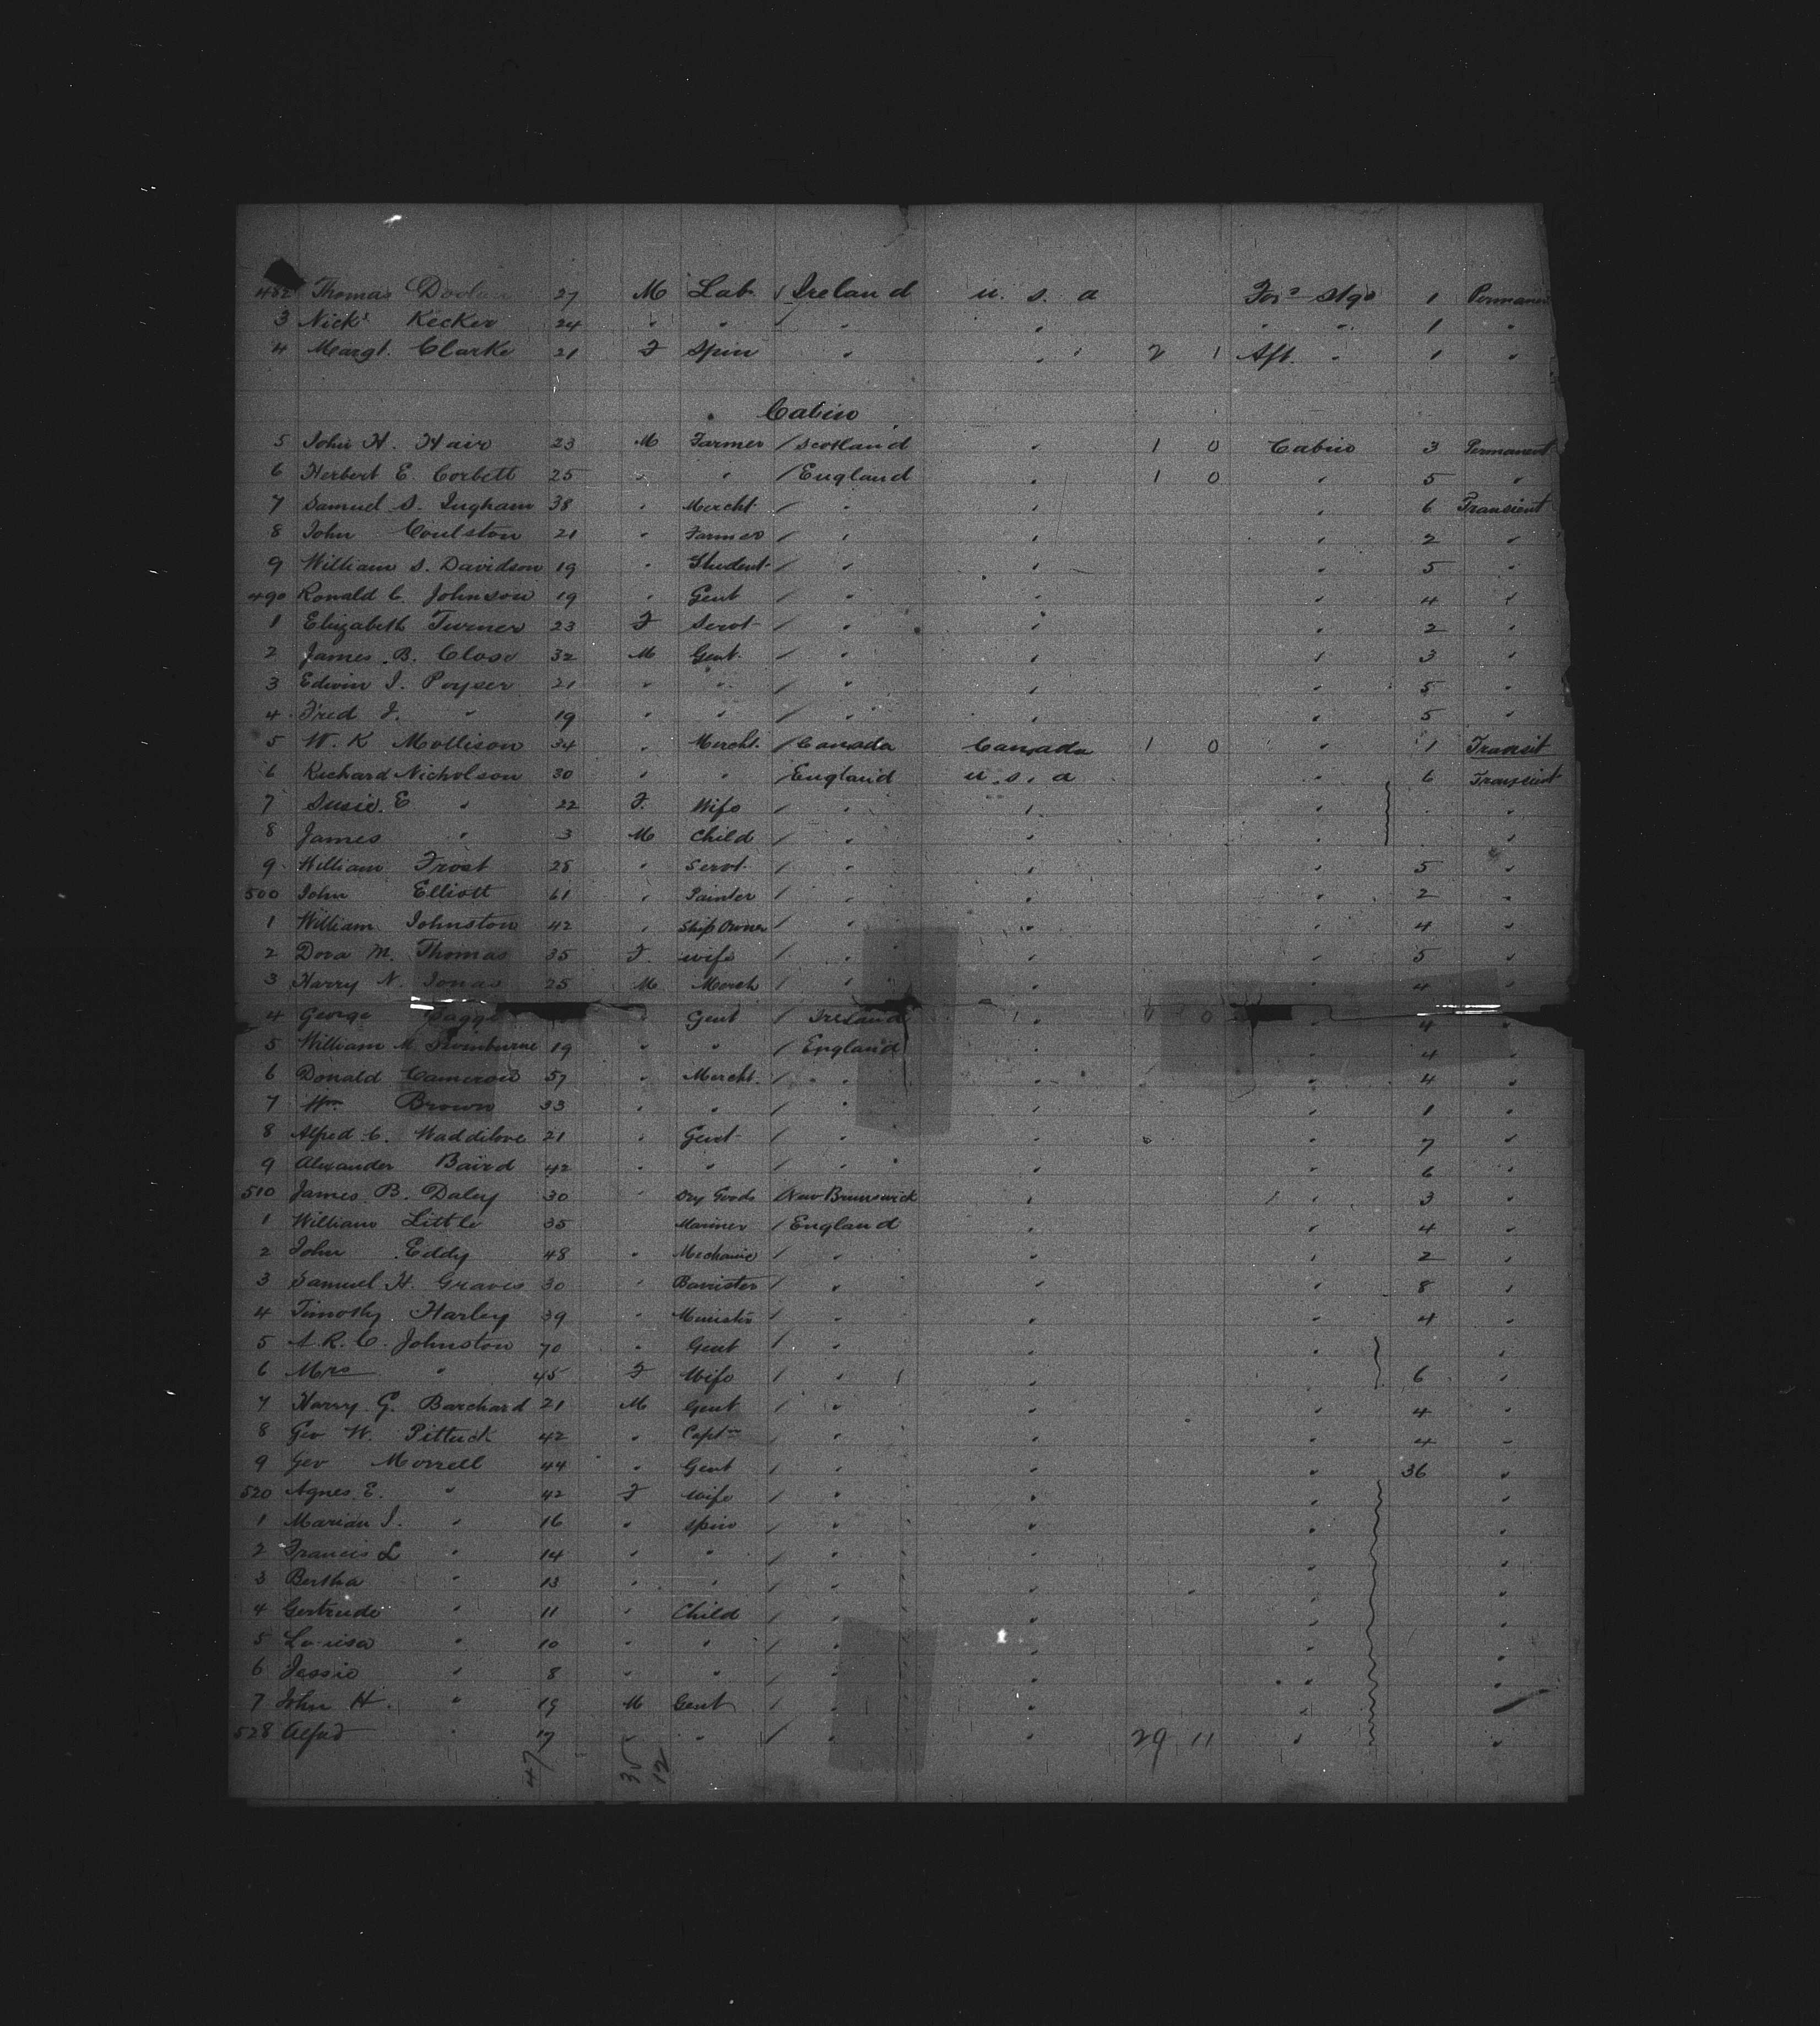 482 Thomas Doolan 27 M Lab / Ireland U. S. A For'd Stge 1 Permanent
3 Nich's Kecker 24 " " / " " " " 1 "
4 Margt. Clarke 21 F Spin " " 2 1 Aft. " 1 "
Cabin
5 John H. Hair 23 M Farmer / Scotland " 1 0 Cabin 3 Permanent
6 Herbert E. Corbett 25 " " / England " 1 0 " 5 "
7 Samuel S. Ingham 38 " Mercht. / " " " 6 Transient
8 John Coulston 21 " Farmer / " " " 2 "
9 William S. Davidson 19 " Student / " " " 5 "
490 Ronald C. Johnson 19 " Gent / " " " 4 "
1 Elizabeth Turner 23 F Servt / " " " 2 "
2 James B. Close 32 M Gent. / " " " 3 "
3 Edwin I. Poyser 21 " " / " " " 5 "
4 Fred J. " 19 " " / " " " 5 "
5 W. K Mollison 34 " Mercht. / Canada Canada 1 0 " 1 Transit
6 Richard Nicholson 30 " " / England U. S. A " 6 Transient
7 Susie. E " 22 F. Wife / " " " "
8 James " 3 M Child / " " " "
9 William Frost 28 " Servt. / " " " 5 "
500 John Elliott 61 " Painter / " " " 2 "
1 William Johnston 42 " Ship Owner / " " " 4 "
2 Dora M. Thomas 35 F. Wife / " " " 5 "
3 Harry N. Jonas 25 M Merch / " " " 4 "
4 George " Gent / Ireland " 0 " 4 "
5 William M. 19 " " / England " " 4 "
6 Donald Cameron 57 " Mercht. / " " " 4 "
7 Wm Brown 33 " " / " " " 1 "
8 Alfred C. Waddilove 21 " Gent / " " " 7 "
9 Alexander Baird 42 " " / " " " 6 "
510 James B. Daley 30 " Dry Goods New Brunswick " " 3 "
1 William Little 35 Mariner / England " " 4 "
2 John Eddy 48 " Mechanic / " " " 2 "
3 Samuel H. Graves 30 " Barrister / " " " 8 "
4 Timothy Harley 39 " Minister / " " " 4 "
5 A. R. C. Johnston 70 " Gent / " " " "
6 Mrs " 45 F Wife / " " " 6 "
7 Harry G. Barchard 21 M Gent / " " " 4 "
8 Geo W. Pittuck 42 " Captn / " " " 4 "
9 Geo Morrell 44 " Gent / " " " 36 "
520 Agnes E. " 42 F Wife / " " " "
1 Marian I. " 16 " Spin / " " " "
2 Francis L " 14 " " / " " " "
3 Bertha " 13 " " / " " " "
4 Gertrude " 11 " Child / " " " "
5 Louisa " 10 " " / " " " "
6 Jessie " 8 " " / " " " "
7 John H. " 19 M Gent / " " "
528 Alfred " 17 " " / " " 29 11 " "
47 35 12